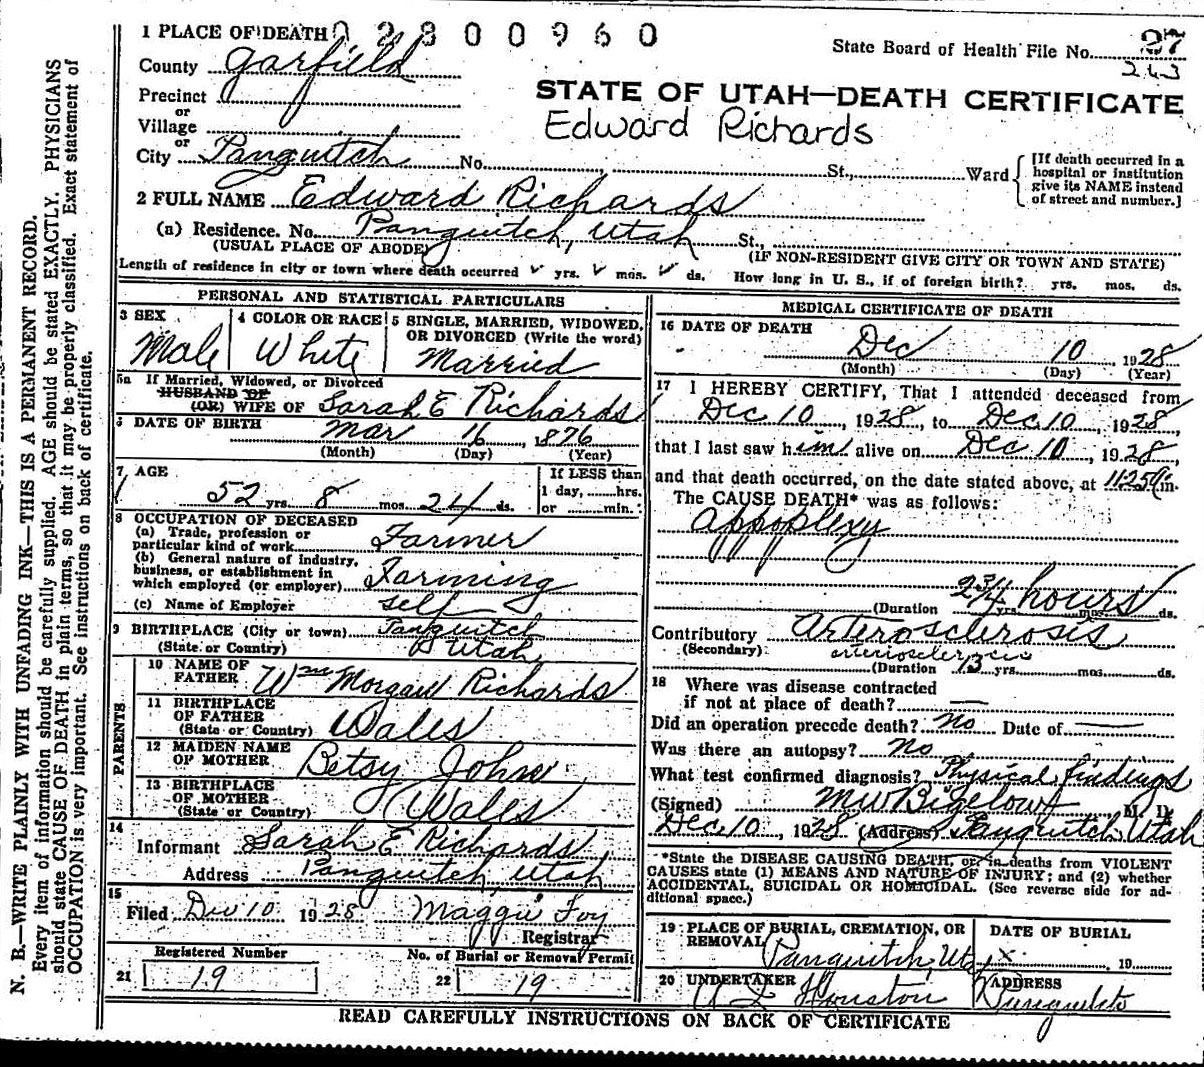 1 PLACE OF DEATH 02800960
State Board of Health File No. 27
243
County Garfield
Precinct
or
Village
or
City Panguitch No. St., Ward
STATE OF UTAH—DEATH CERTIFICATE
Edward Richards
[If death occurred in a
hospital or institution
give its NAME instead
of street and number.]
2 FULL NAME Edward Richards
(a) Residence. No. Panguitch, Utah St.,
(USUAL PLACE OF ABODE) (IF NON-RESIDENT GIVE CITY OR TOWN AND STATE)
Length of residence in city or town where death occurred yrs. mos. ds. How long in U. S., if of foreign birth? yrs. mos. ds.
PERSONAL AND STATISTICAL PARTICULARS
3 SEX
Male
4 COLOR OR RACE
White
5 SINGLE, MARRIED, WIDOWED,
OR DIVORCED (Write the word)
Married
5a If Married, Widowed, or Divorced
HUSBAND OF
(OR) WIFE OF Sarah E Richards
DATE OF BIRTH Mar 16, 1876
(Month) (Day) (Year)
7 AGE
52 yrs. 8 mos. 24 ds.
If LESS than
1 day, hrs.
or min.
8 OCCUPATION OF DECEASED
(a) Trade, profession or
particular kind of work Farmer
(b) General nature of industry,
business, or establishment in
which employed (or employer) Farming
(c) Name of Employer self
9 BIRTHPLACE (City or town) Panguitch
(State or Country) Utah
PARENTS
10 NAME OF
FATHER Wm Morgan Richards
11 BIRTHPLACE
OF FATHER
(State or Country) Wales
12 MAIDEN NAME
OF MOTHER Betsy John
13 BIRTHPLACE
OF MOTHER
(State or Country) Wales
14
Informant Sarah E Richards
Address Panguitch, Utah
15
Filed Dec 10 1928 Maggie Foy
Registrar
Registered Number
21 19
No. of Burial or Removal Permit
22 19
MEDICAL CERTIFICATE OF DEATH
16 DATE OF DEATH
Dec 10, 1928
(Month) (Day) (Year)
17 I HEREBY CERTIFY, That I attended deceased from
Dec 10, 1928, to Dec 10, 1928,
that I last saw him alive on Dec 10, 1928,
and that death occurred, on the date stated above, at 1125 m.
The CAUSE DEATH* was as follows:
Appoplexy
(Duration 2 3/4 hours yrs. mos. ds.
Contributory Arterosclerosis
(Secondary) arteriosclerosis
(Duration 13 yrs. mos. ds.
18 Where was disease contracted
if not at place of death? —
Did an operation precede death? No Date of —
Was there an autopsy? No
What test confirmed diagnosis? Physical findings
(Signed) M W Bigelow M. D.
Dec 10, 1928 (Address) Panguitch Utah
*State the DISEASE CAUSING DEATH, or, in deaths from VIOLENT
CAUSES state (1) MEANS AND NATURE OF INJURY; and (2) whether
ACCIDENTAL, SUICIDAL OR HOMICIDAL. (See reverse side for ad-
ditional space.)
19 PLACE OF BURIAL, CREMATION, OR
REMOVAL Panguitch, Uta
DATE OF BURIAL
x, 19
20 UNDERTAKER
Houston
ADDRESS
Panguitch
READ CAREFULLY INSTRUCTIONS ON BACK OF CERTIFICATE
N. B.—WRITE PLAINLY WITH UNFADING INK—THIS IS A PERMANENT RECORD.
Every item of information should be carefully supplied. AGE should be stated EXACTLY. PHYSICIANS
should state CAUSE OF DEATH in plain terms, so that it may be properly classified. Exact statement of
OCCUPATION is very important. See instructions on back of certificate.